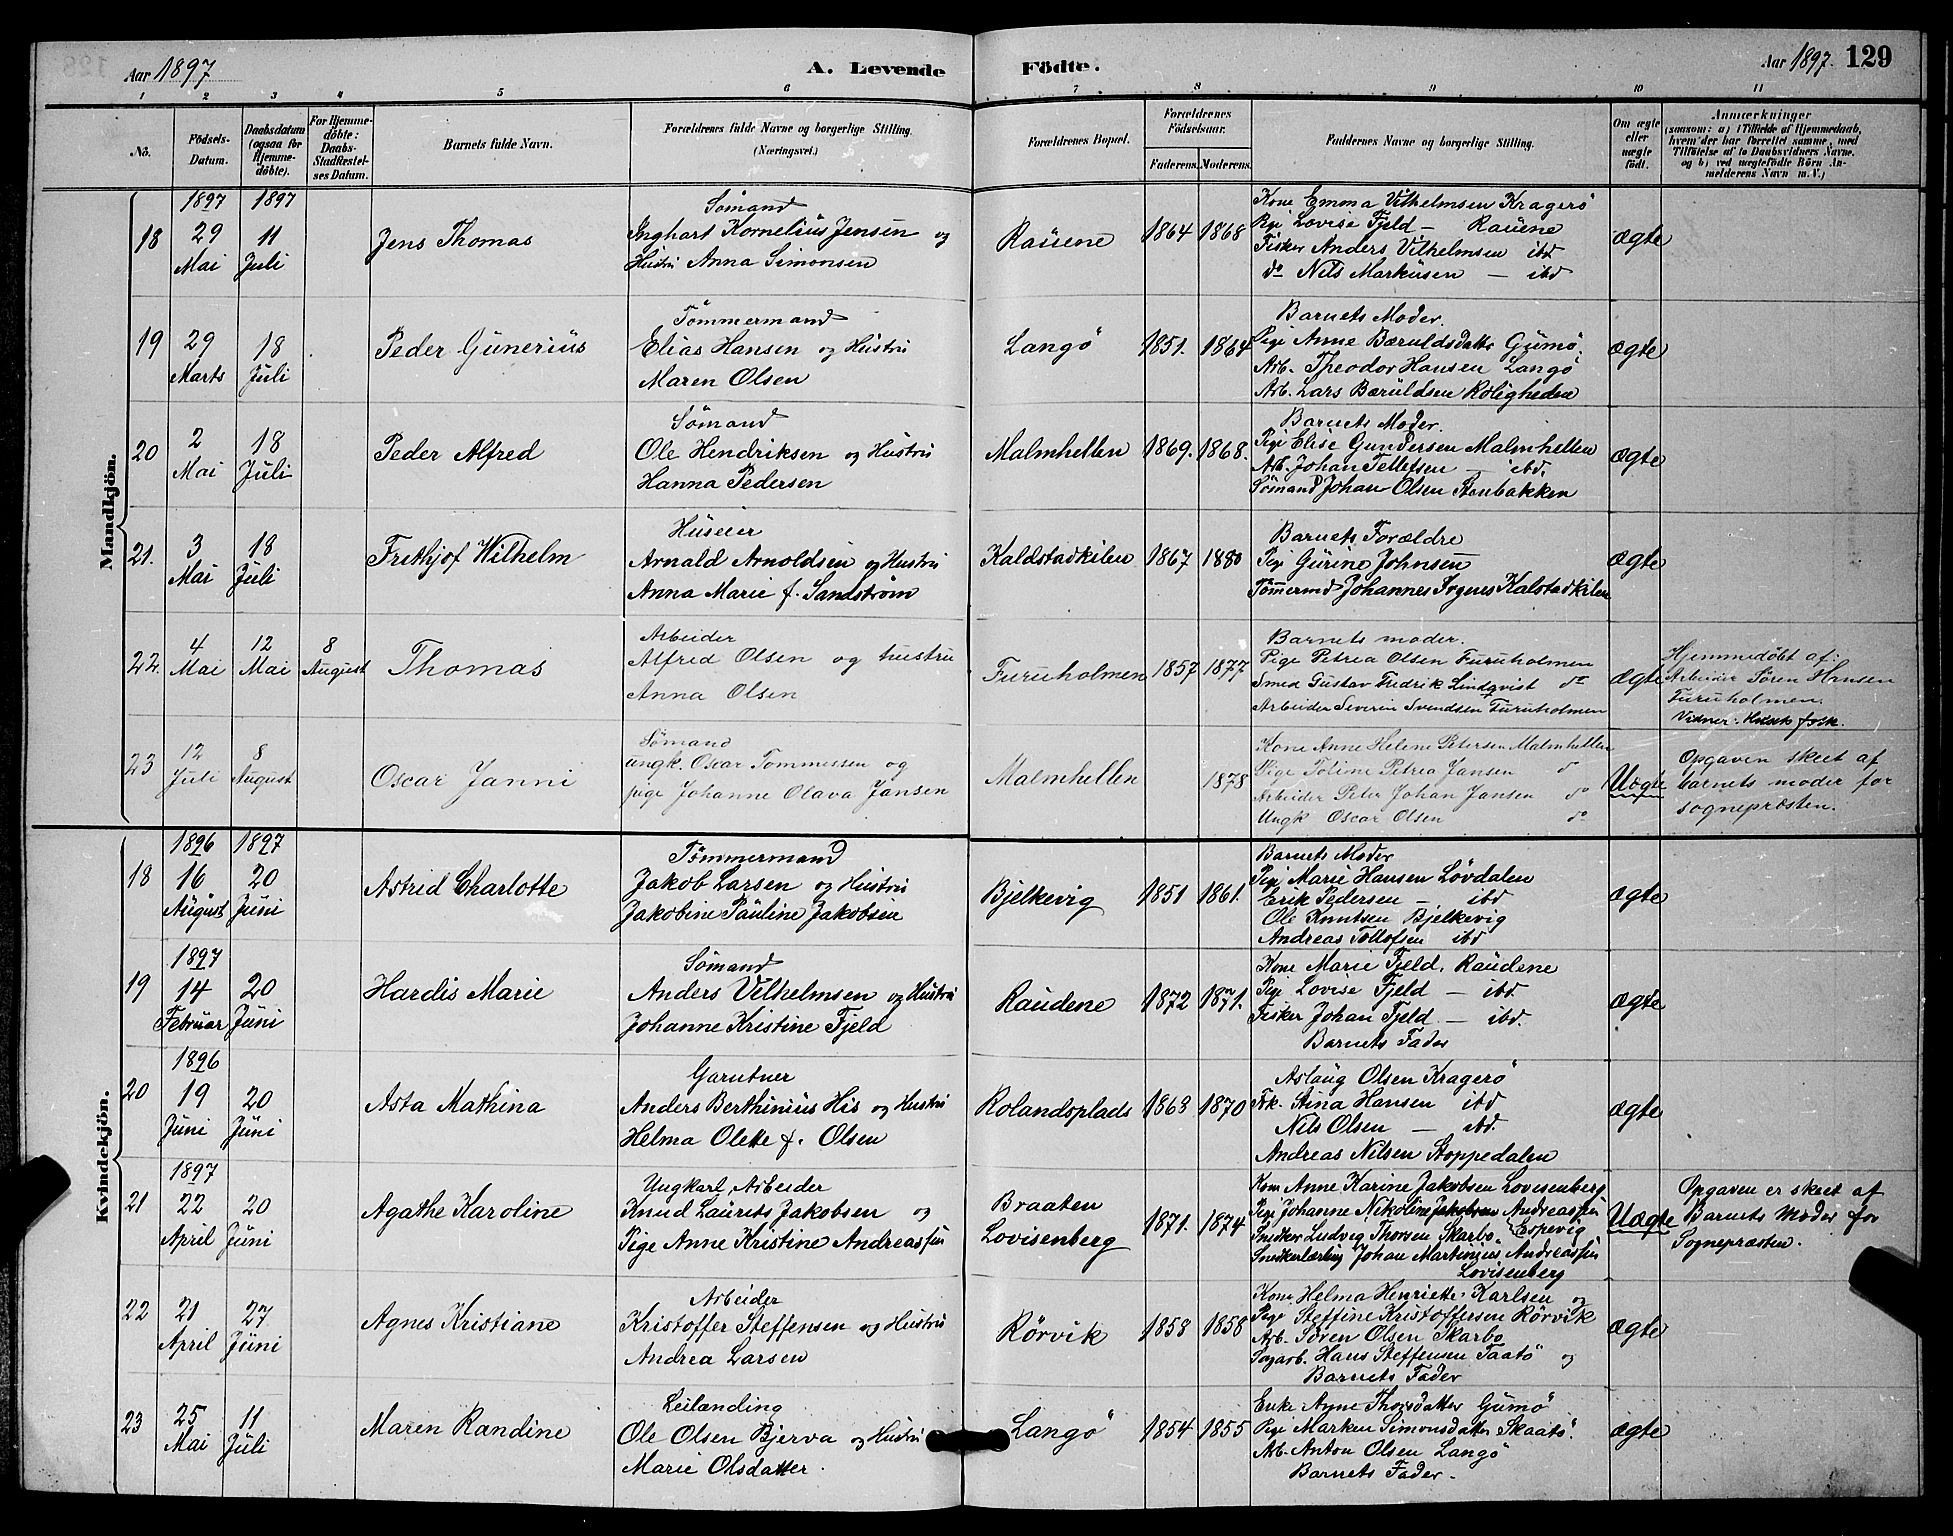 Aar 1897
A. Levende Födte.
Aar 1897. 129
1 2 3 4 5 6 7 8 9 10 11
No.
Födsels-Datum.
Daabsdatum (ogsaa for Hjemmedöbte).
For Hjemmedöbte: Daabs-Stadfæstelses Datum.
Barnets fulde Navn.
Forældrenes fulde Navne og borgerlige Stilling. (Næringsvei.)
Forældrenes Bopæl.
Forældrenes Födselsaar.
Faderens. Moderens.
Faddernes Navne og borgerlige Stilling.
Om ægte eller uægte födt.
Anmærkninger
(saasom: a) i Tilfælde af Hjemmedaab, hvem der har forrettet samme, med Tilföielse af to Daabsvidners Navne, og b) ved uægtefödte Börn Anmelderens Navn m. V.)
Mandkjön.
1897 1897
18 29 Mai 11 Juli
Jens Thomas
Sömand
Inghart Kornelius Jensen og
Hustru Anna Simonsen
Rauene 1864 1868
Kone Emma Vilhelmsen Kragerö
Pige Lovise Fjeld — Rauene
Fisker Anders Vilhelmsen ibd
do Nils Markusen — ibd
ægte
19 29 Marts 18 Juli
Peder Gunerius
Tömmermand
Elias Hansen og Hustru
Maren Olsen
Langö 1851. 1864
Barnets Moder.
Pige Anne Bæruldsdatter Gumö.
Arb. Theodor Hansen Langö
Arb. Lars Bæruldsen Roligheden
ægte
20 2 Mai 18 Juli
Peder Alfred
Sömand
Ole Hendriksen og Hustru
Hanna Pedersen
Malmhellen 1869. 1868.
Barnets Moder.
Pige Elise Gundersen Malmhellen
Arb. Johan Tellefsen — ibd.
Sömand Johan Olsen Stenbakken
ægte
21. 3 Mai 18 Juli
Frithjof Wilhelm
Huseier
Arnald Arnoldsen og Hustru
Anna Marie f. Sandström
Kaldstadkilen 1867 1880
Barnets Forældre
Pige Gurine Johnsen
Tömermd Johannes Kalstadkilen
ægte
22. 4 Mai 12 Mai 8 August
Thomas
Arbeider
Alfred Olsen og hustru
Anna Olsen
Furuholmen 1857 1877
Barnets moder.
Pige Petrea Olsen Furuholmen
Smed Gustav Fredrik Lindqvist do
Arbeider Severin Svendsen Furuholmen
ægte
Hjemmedöbt af:
Arbeider Sören Hansen
Furuholmen.
Vidner: Husets folk.
23 12 Juli 8 August
Oscar Janni
Sömand
ungk. Oscar Tommessen og
pige Johanne Olava Jansen
Malmhellen 1878
Kone Anne Helene Petersen Malmhellen
Pige Toline Petrea Jansen do
Arbeider Peter Johan Jansen do
Ungk Oscar Olsen do
Uægte
Opgaven skeet af
barnets moder for
sognepræsten.
Kvindekjön.
1896 1897
18 16 August 20 Juni
Astrid Charlotte
Tömmermand
Jakob Larsen og Hustru
Jakobine Pauline Jakobsen
Bjelkevig 1851 1861.
Barnets Moder
Pige Marie Hansen Lövdalen
Erik Pedersen — ibd
Ole Knutsen Bjelkevig
Andreas Tollofsen ibd
ægte
1897
19 14 Februar 20 Juni
Hardis Marie
Sömand
Anders Vilhelmsen og Hustru
Johanne Kristine Fjeld
Raudene 1872 1871.
Kone Marie Fjeld, Raudene
Pige Lovise Fjeld — ibd.
Fisker Johan Fjeld — ibd.
Barnets Fader
ægte
1896
20 19 Juni 20 Juni
Asta Mathina
Garntner
Anders Berthinius His og Hustru
Helma Olette f. Olsen
Rolandsplads 1863 1870
Aslaug Olsen Kragerö
Frk. Stina Hansen ibd
Nils Olsen — ibd.
Andreas Nilsen Stoppedalen
ægte
1897
21 22 April 20 Juni
Agathe Karoline
Ungkarl, Arbeider
Knud Laurits Jakobsen og
Pige Anne Kristine Andreassen
Braaten
Lovisenberg 1871. 1874
Kone Anne Karine Jakobsen Lovisenberg
Pige Johanne Nikoline Andreassen
Snedker Ludvig Thorsen Skarbo. Espevig
Snedkerlærling Johan Martinius Andreassen
Lovisenberg
Uægte
Opgaven er skeet af
Barnets Moder for
Sognepræsten.
22 21 April 27 Juni
Agnes Kristiane
Arbeider
Kristoffer Steffensen og Hustru
Andrea Larsen
Rörvik 1858 1858
Kone Helma Henriette Karlsen og
Pige Steffine Kristoffersen Rörvik
Arb. Sören Olsen Skarbo
Sagarb. Hans Steffensen Taatö og
Barnets Fader
ægte
23 25 Mai 11 Juli
Maren Randine
Leilænding
Ole Olsen Bjerva og Hustru
Marie Olsdatter.
Langö 1854 1855
Enke Anne Thorsdatter Gumö
Pige Marken Simonsdatter Skaatö.
Arb. Anton Olsen Langö
Barnets Fader.
ægte